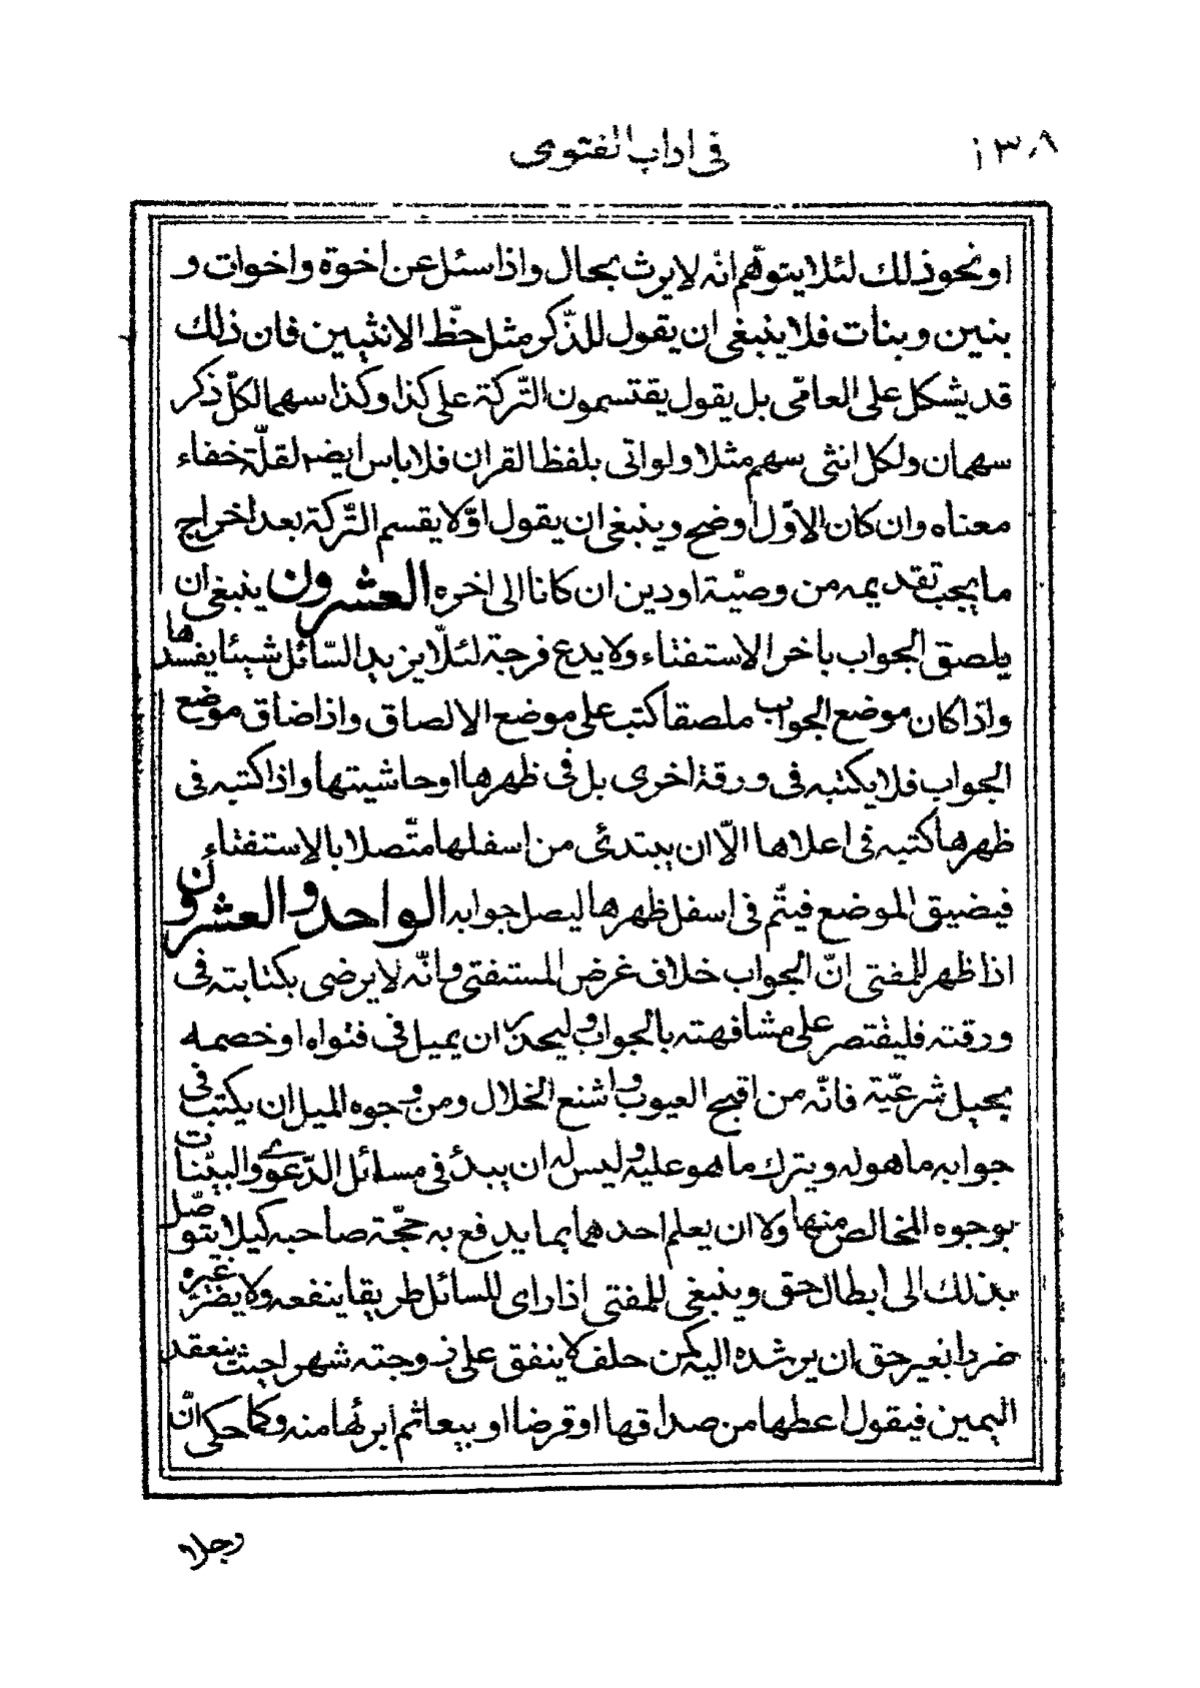 ١٣٠٨ في اداب الفتوى
او نحو ذلك لئلا يتوهّم انّه لا يرث بحال واذا سئل عن اخوة واخوات و
بنين وبنات فلا ينبغي ان يقول للذّكر مثل حظّ الانثيين فان ذلك
قد يشكل على العامّي بل يقول يقتسمون التّركة على كذا وكذا سهما لكلّ ذكر
سهمان ولكل انثى سهم مثلا ولو اتى بلفظ القران فلا باس ايضم لقلّة خفاء
معناه وان كان الاوّل اوضح وينبغي ان يقول اوّلا يقسم التّركة بعد اخراج
ما يجب تقديمه من وصيّة او دين ان كانا الى اخره العشرون ينبغي ان
يلصق الجواب باخر الاستفتاء ولا يدع فرجة لئلّا يزيد السّائل شيئا يفسدها
واذا كان موضع الجواب ملصقا كتب على موضع الالصاق واذا ضاق موضع
الجواب فلا يكتبه في ورقة اخرى بل في ظهرها او حاشيتها واذا كتبه في
ظهرها كتبه في اعلاها الّا ان يبتدئ من اسفلها متّصلا بالاستفتاء
فيضيق الموضع فيتّم في اسفل ظهرها ليصل جوابه الواحد والعشرون
اذا ظهر للمفتي انّ الجواب خلاف غرض المستفتي وانّه لا يرضى بكتابته في
ورقته فليقتصر على مشافهته بالجواب وليحذر ان يميل في فتواه او خصمه
بحيل شرعيّة فانّه من اقبح العيوب واشنع الخلال ومن وجوه الميل ان يكتب في
جوابه ما هو له ويترك ما هو عليه وليس له ان يبدئ في مسائل الدّعوى والبيّنات
بوجوه المخالص منها ولا ان يعلم احدهما بما يدفع به حجّة صاحبه كيلا يتوصّل
بذلك الى ابطال حق وينبغي للمفتي اذا راى للسائل طريقا ينفعه ولا يضرّ غيره
ضررا بغير حق ان يرشده اليه كمن حلف لا ينفق على زوجته شهرا حيث ينعقد
اليمين فيقول اعطها من صداقها او قرضا او بيعا ثم ابرئها منه وكما حكى انّ
رجلا